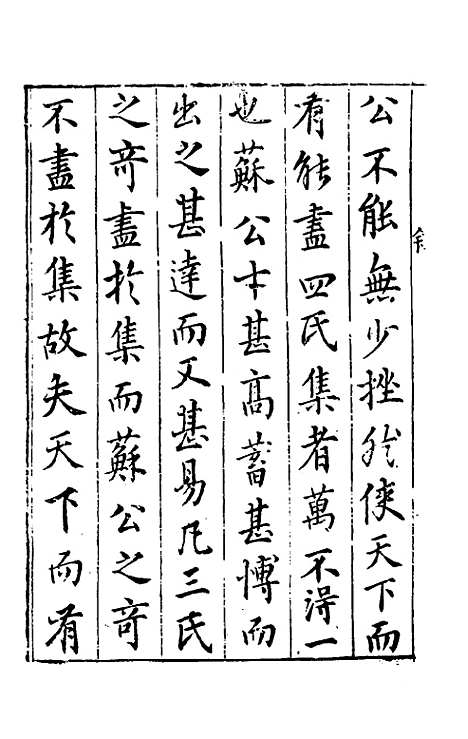 公不能無少挫然使天下而
有能盡四氏集者萬不得一
也蘇公才甚髙蓄甚博而
出之甚達而又甚易凡三氏
之竒盡於集而蘇公之竒
不盡於集故夫天下而有